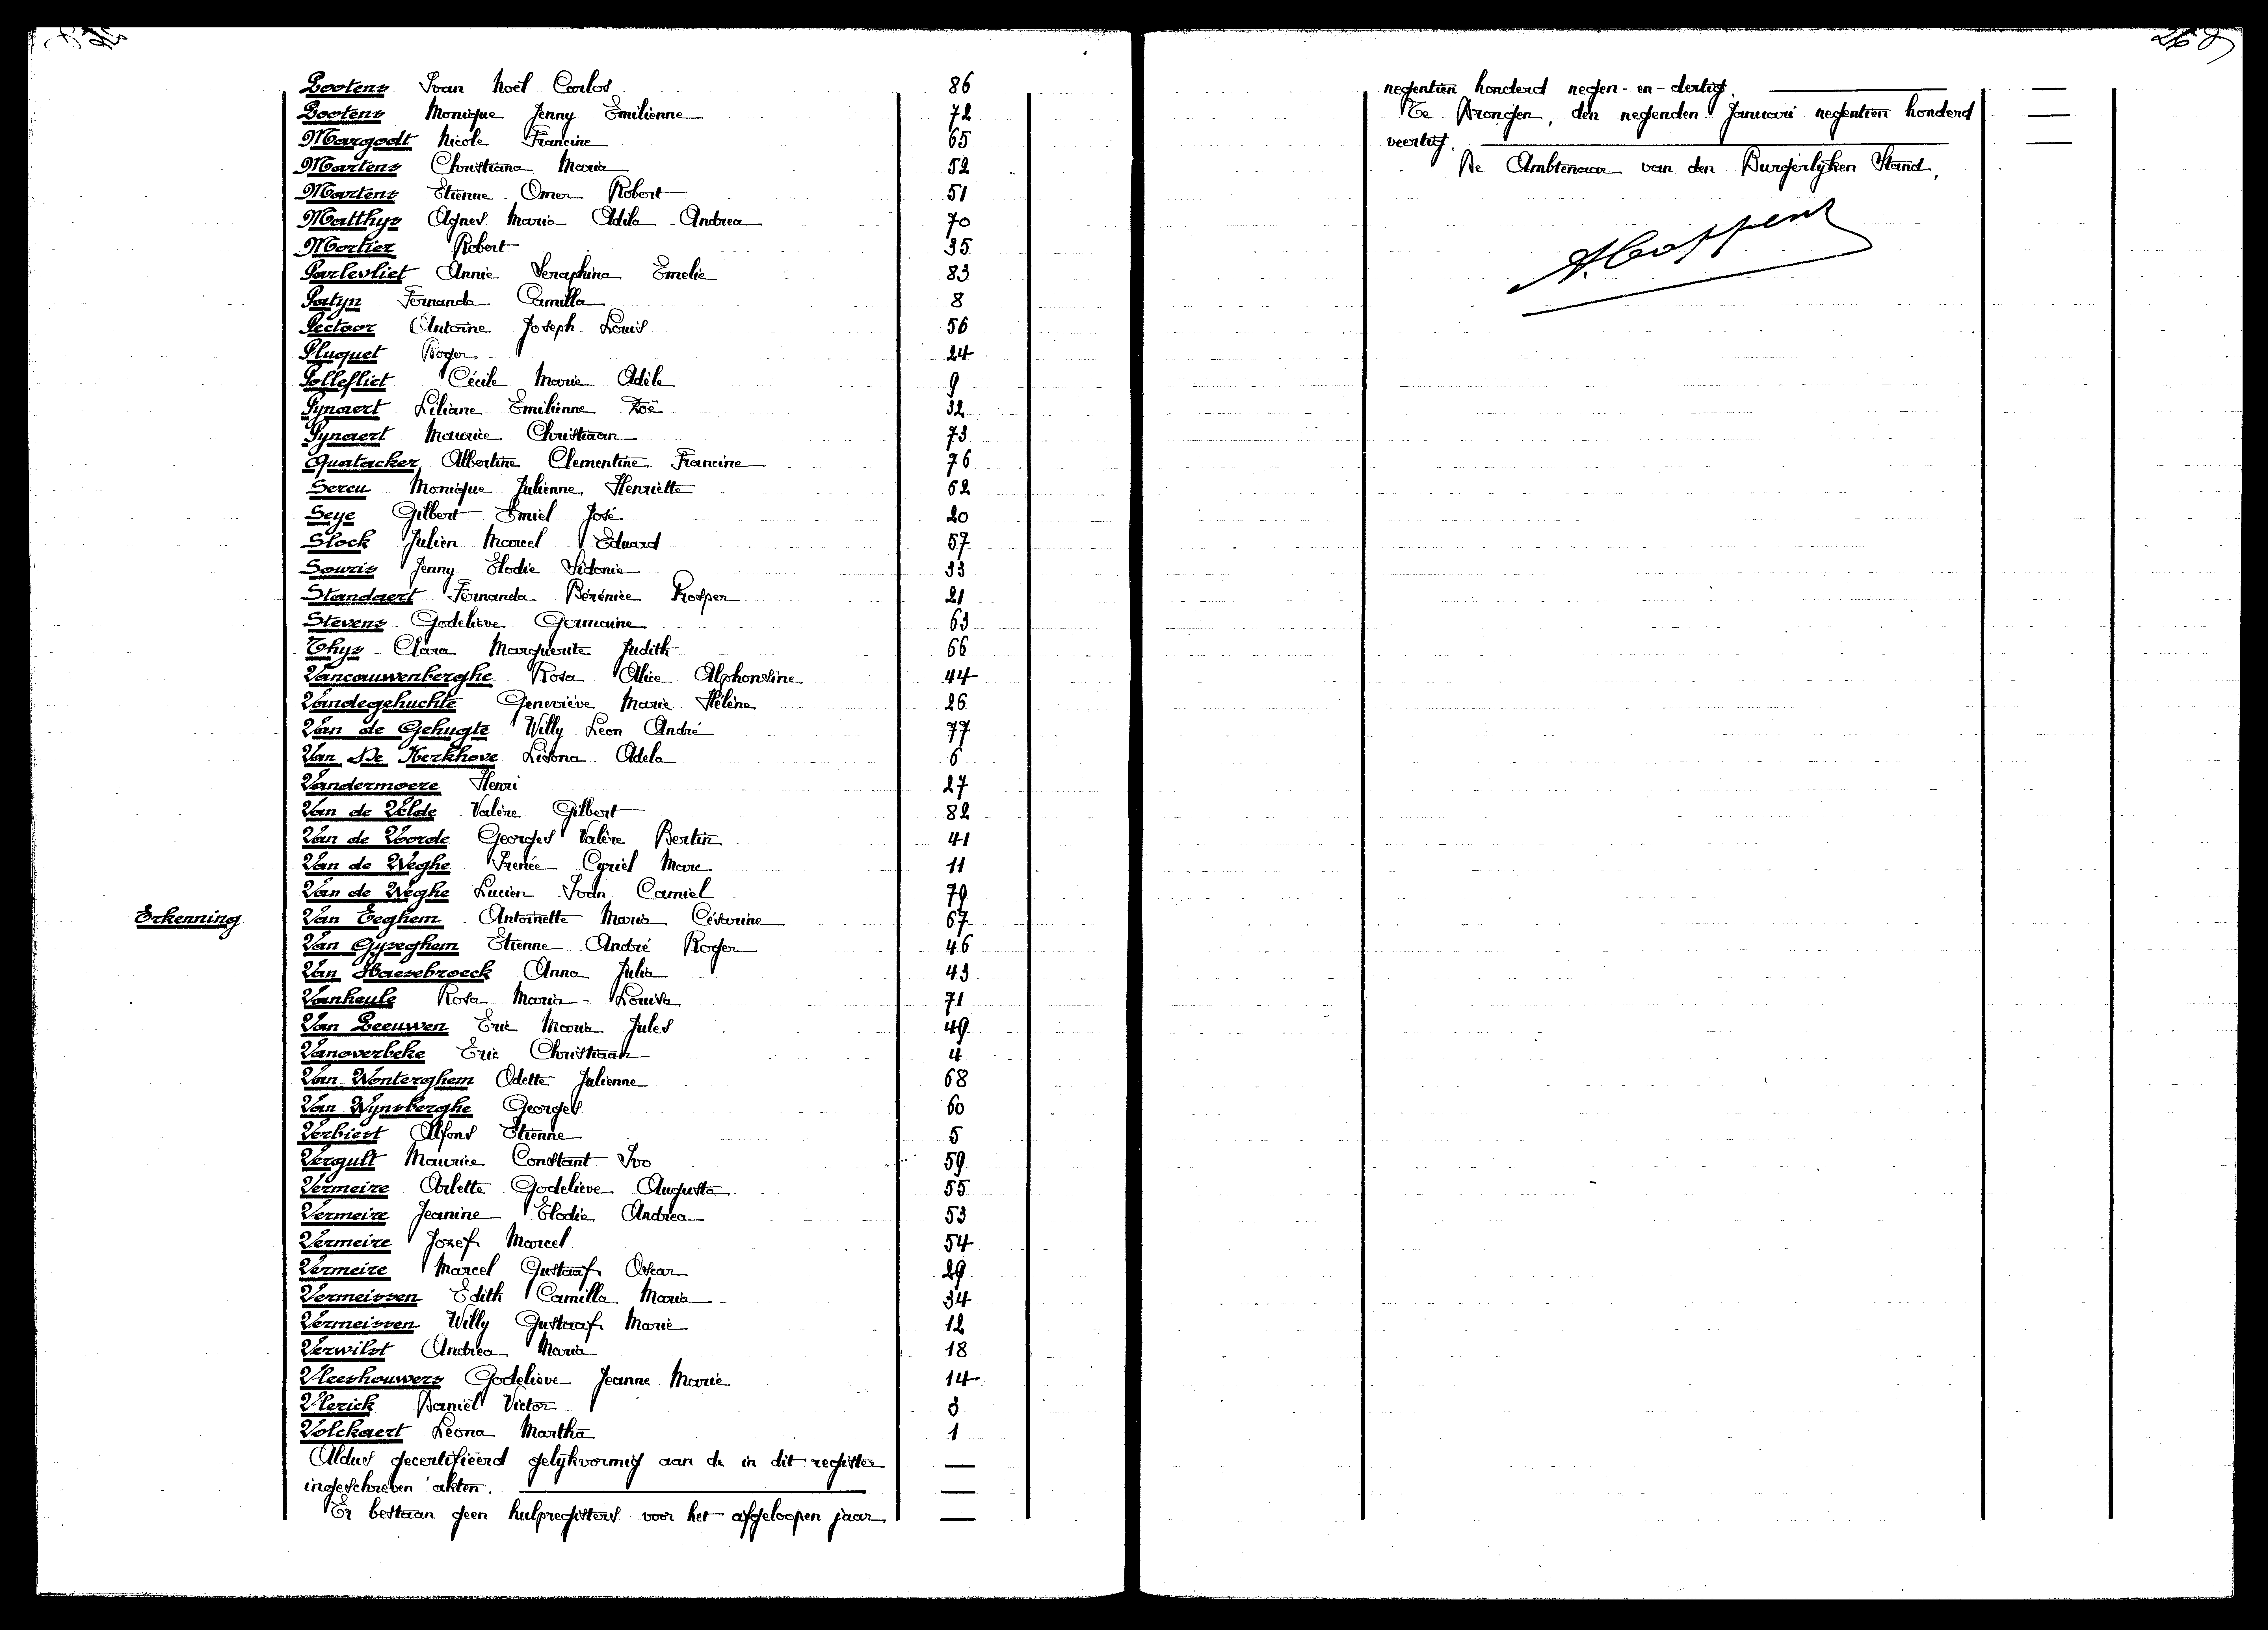 Lootens Ivan Noël Carlos 86
Lootens Monique Jenny Emilienne 72
Margodt Nicole Francine 65
Martens Christiana Maria 52
Martens Etienne Omer Robert 51
Matthys Agnes Maria Adila Andrea 70
Mortier Robert 35
Parlevliet Annie Seraphina Emelie 83
Patyn Fernanda Camilla 8
Pectoor Antoine Joseph Louis 56
Pluquet Roger 24
Polleflict Cécile Marie Adèle 9
Pynaert Liliane Emilienne Zoë 32
Pynaert Maurice Christiaan 73
Quatacker Albertine Clementine Francine 76
Sercu Monique Julienne Henriette 62
Seye Gilbert Emiel José 20
Slock Julien Marcel Eduard 57
Souris Jenny Elodie Sidonie 33
Standaert Fernanda Bérénice Prosper 21
Stevens Godelieve Germaine 63
Thys Clara Marguerite Judith 66
Vancauwenberghe Rosa Alice Alphonsine 44
Vandegehuchte Geneviève Marie Hélène 26
Van de Gehugte Willy Leon André 77
Van De Kerkhove Lisona Adela 6
Vandermoere Henri 27
Van de Velde Valère Gilbert 82
Van de Voorde Georges Valère Bertin 41
Van de Weghe Irenée Cyriel Marc 11
Van de Weghe Lucien Ivan Camiel 79
Erkenning Van Eeghem Antoinette Maria Césarine 67
Van Gyseghem Etienne André Roger 46
Van Haesebroeck Anna Julia 43
Vanheule Rosa Maria-Louisa 71
Van Leeuwen Eric Maria Jules 49
Vanoverbeke Eric Christiaan 4
Van Wonterghem Odette Julienne 68
Van Wynsberghe Georges 60
Verbiest Alfons Etienne 5
Vergult Maurice Constant Ivo 59
Vermeire Arlette Godelieve Augusta 55
Vermeire Jeanine Elodie Andrea 53
Vermeire Jozef Marcel 54
Vermeire Marcel Gustaaf Oscar 29
Vermeissen Edith Camilla Maria 34
Vermeissen Willy Gustaaf Marie 12
Verwilst Andrea Maria 18
Vleeshouwers Godelieve Jeanne Marie 14
Vlerick Daniël Victor 3
Volckaert Leona Martha 1
Aldus gecertifiëerd gelijkvormig aan de in dit register
ingeschreven akten.
Er bestaan geen hulpregisters voor het afgeloopen jaar
negentien honderd negen-en-dertig.
Te Drongen, den negenden Januari negentien honderd
veertig.
De Ambtenaar van den Burgerlijken Stand,
A. Coppens